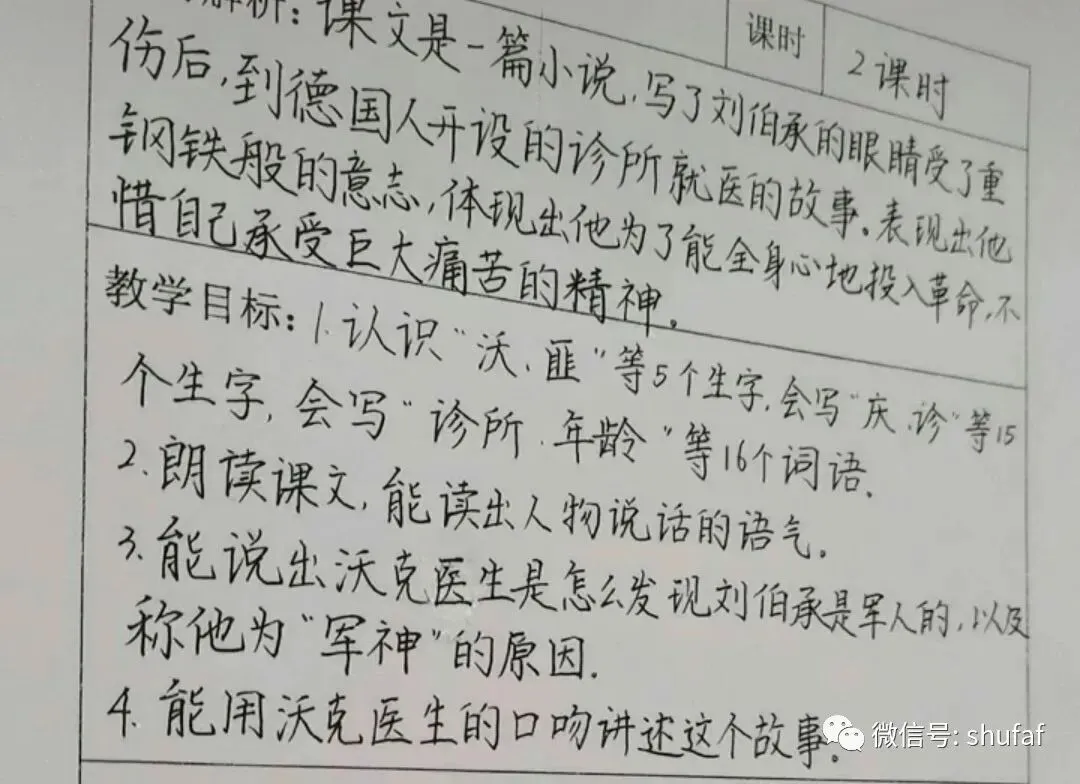 解析：课文是一篇小说，写了刘伯承的眼睛受了重
课时 2课时
伤后，到德国人开设的诊所就医的故事。表现出他
钢铁般的意志，体现出他为了能全身心地投入革命，不
惜自己承受巨大痛苦的精神。
教学目标：1.认识“沃、匪”等5个生字，会写“庆、诊”等15
个生字，会写“诊所、年龄”等16个词语。
2.朗读课文，能读出人物说话的语气。
3.能说出沃克医生是怎么发现刘伯承是军人的，以及
称他为“军神”的原因.
4.能用沃克医生的口吻讲述这个故事。
微信号: shufaf